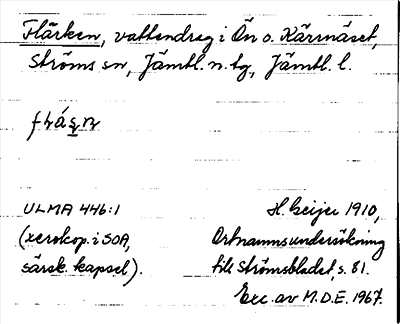 Flärken, vattendrag i Ön o. Kärrnäset,
Ströms sn, Jämtl. n. tg, Jämtl. l.
ULMA 446:1
(xerokop. i SOA,
särsk. kapsel).
H. Geijer 1910,
Ortnamnsundersökning
till Strömsbladet, s. 81.
Exc. av M.D.E. 1967.